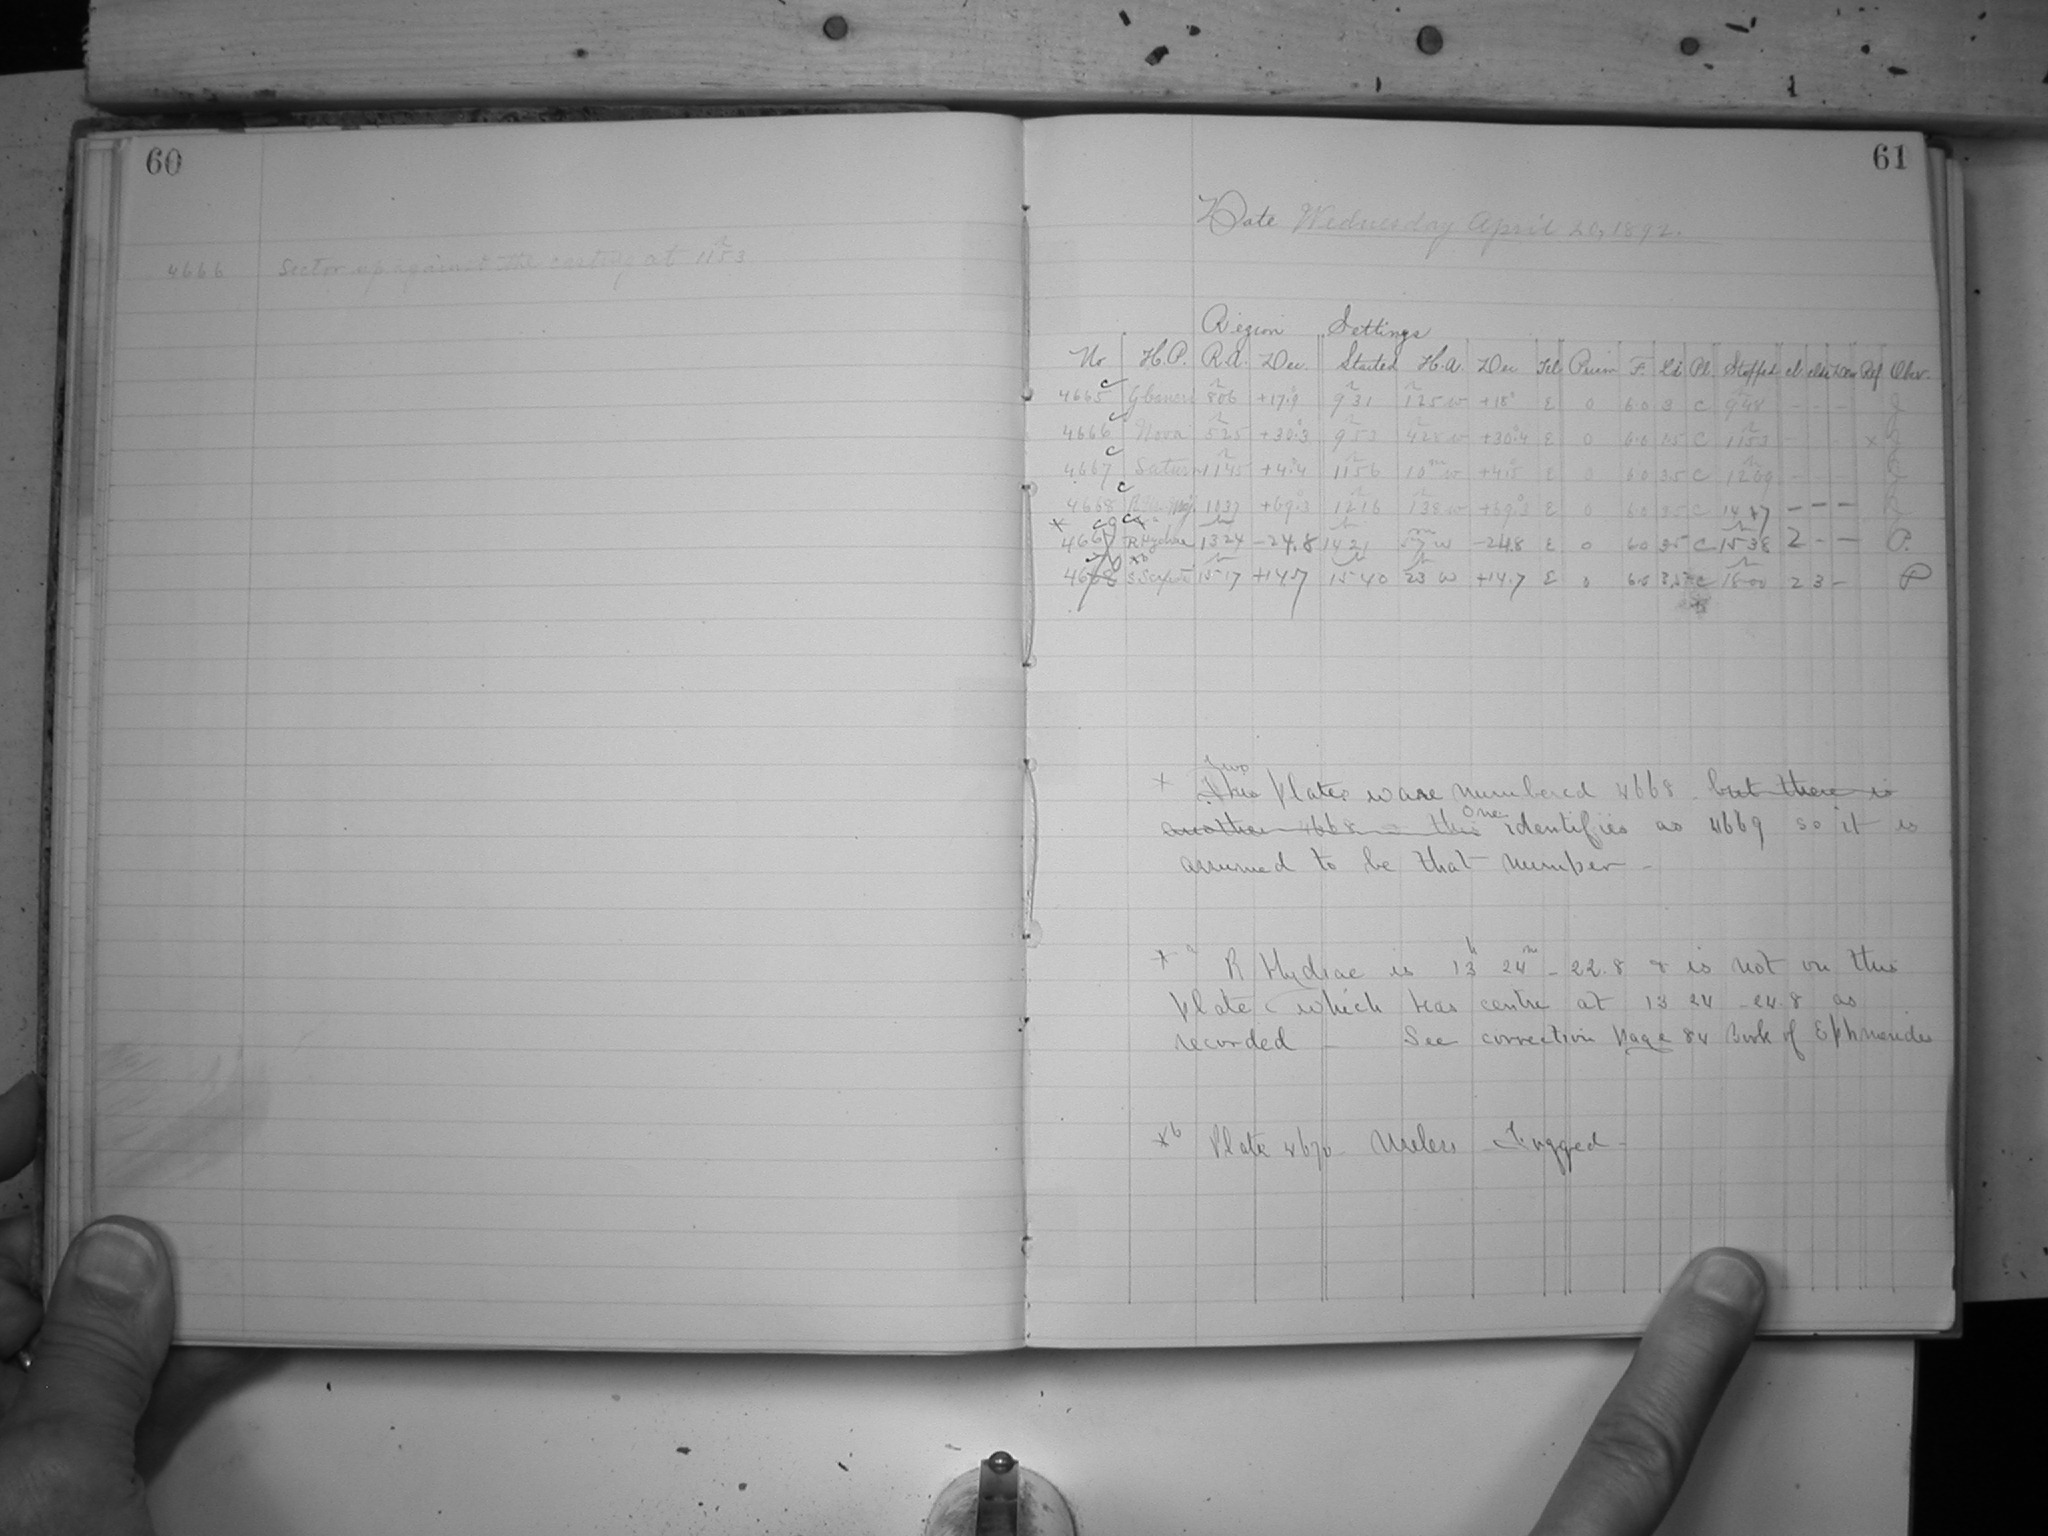 60
4666 Sector up against the casting at 11h53
61
Date Wednesday April 20, 1892.
Region Settings
No H.P. R.A. Dec. Started H.A. Dec Tel Prism F. Ex Pl. Stopped cl Ref Obsr.
4665 806 +17.9 931 125 w +18° E 0 6.0 3 C 948 - - - J
4666 Nova 525 +30.3 953 428 w +30.4 E 0 6.0 15 C 1153 - - - x J
4667 Saturn 1145 +4.4 1156 10m w +4.5 E 0 6.0 35 C - - - J
4668 1037 +69.3 1216 138 w +69.3 E 0 6.0 35 C 1417 - - -
x 4669 R Hydrae 1324 -24.8 1421 57 w -24.8 E 0 6.0 35 C 1538 2 - - P.
4670 1517 +14.7 1540 23 w +14.7 E 0 6.0 C 1600 2 3 - P
x two This plates ware numbered 4668 but there is
another 4668 this one identifies as 4669 so it is
assumed to be that number -
x a R Hydrae is 13h 24m -22.8 & is not on this
plate which has centre at 13 24 -24.8 as
recorded - See correction page 84 Book of Ephmerides
x b Plate 4670 - Useless - Fogged -